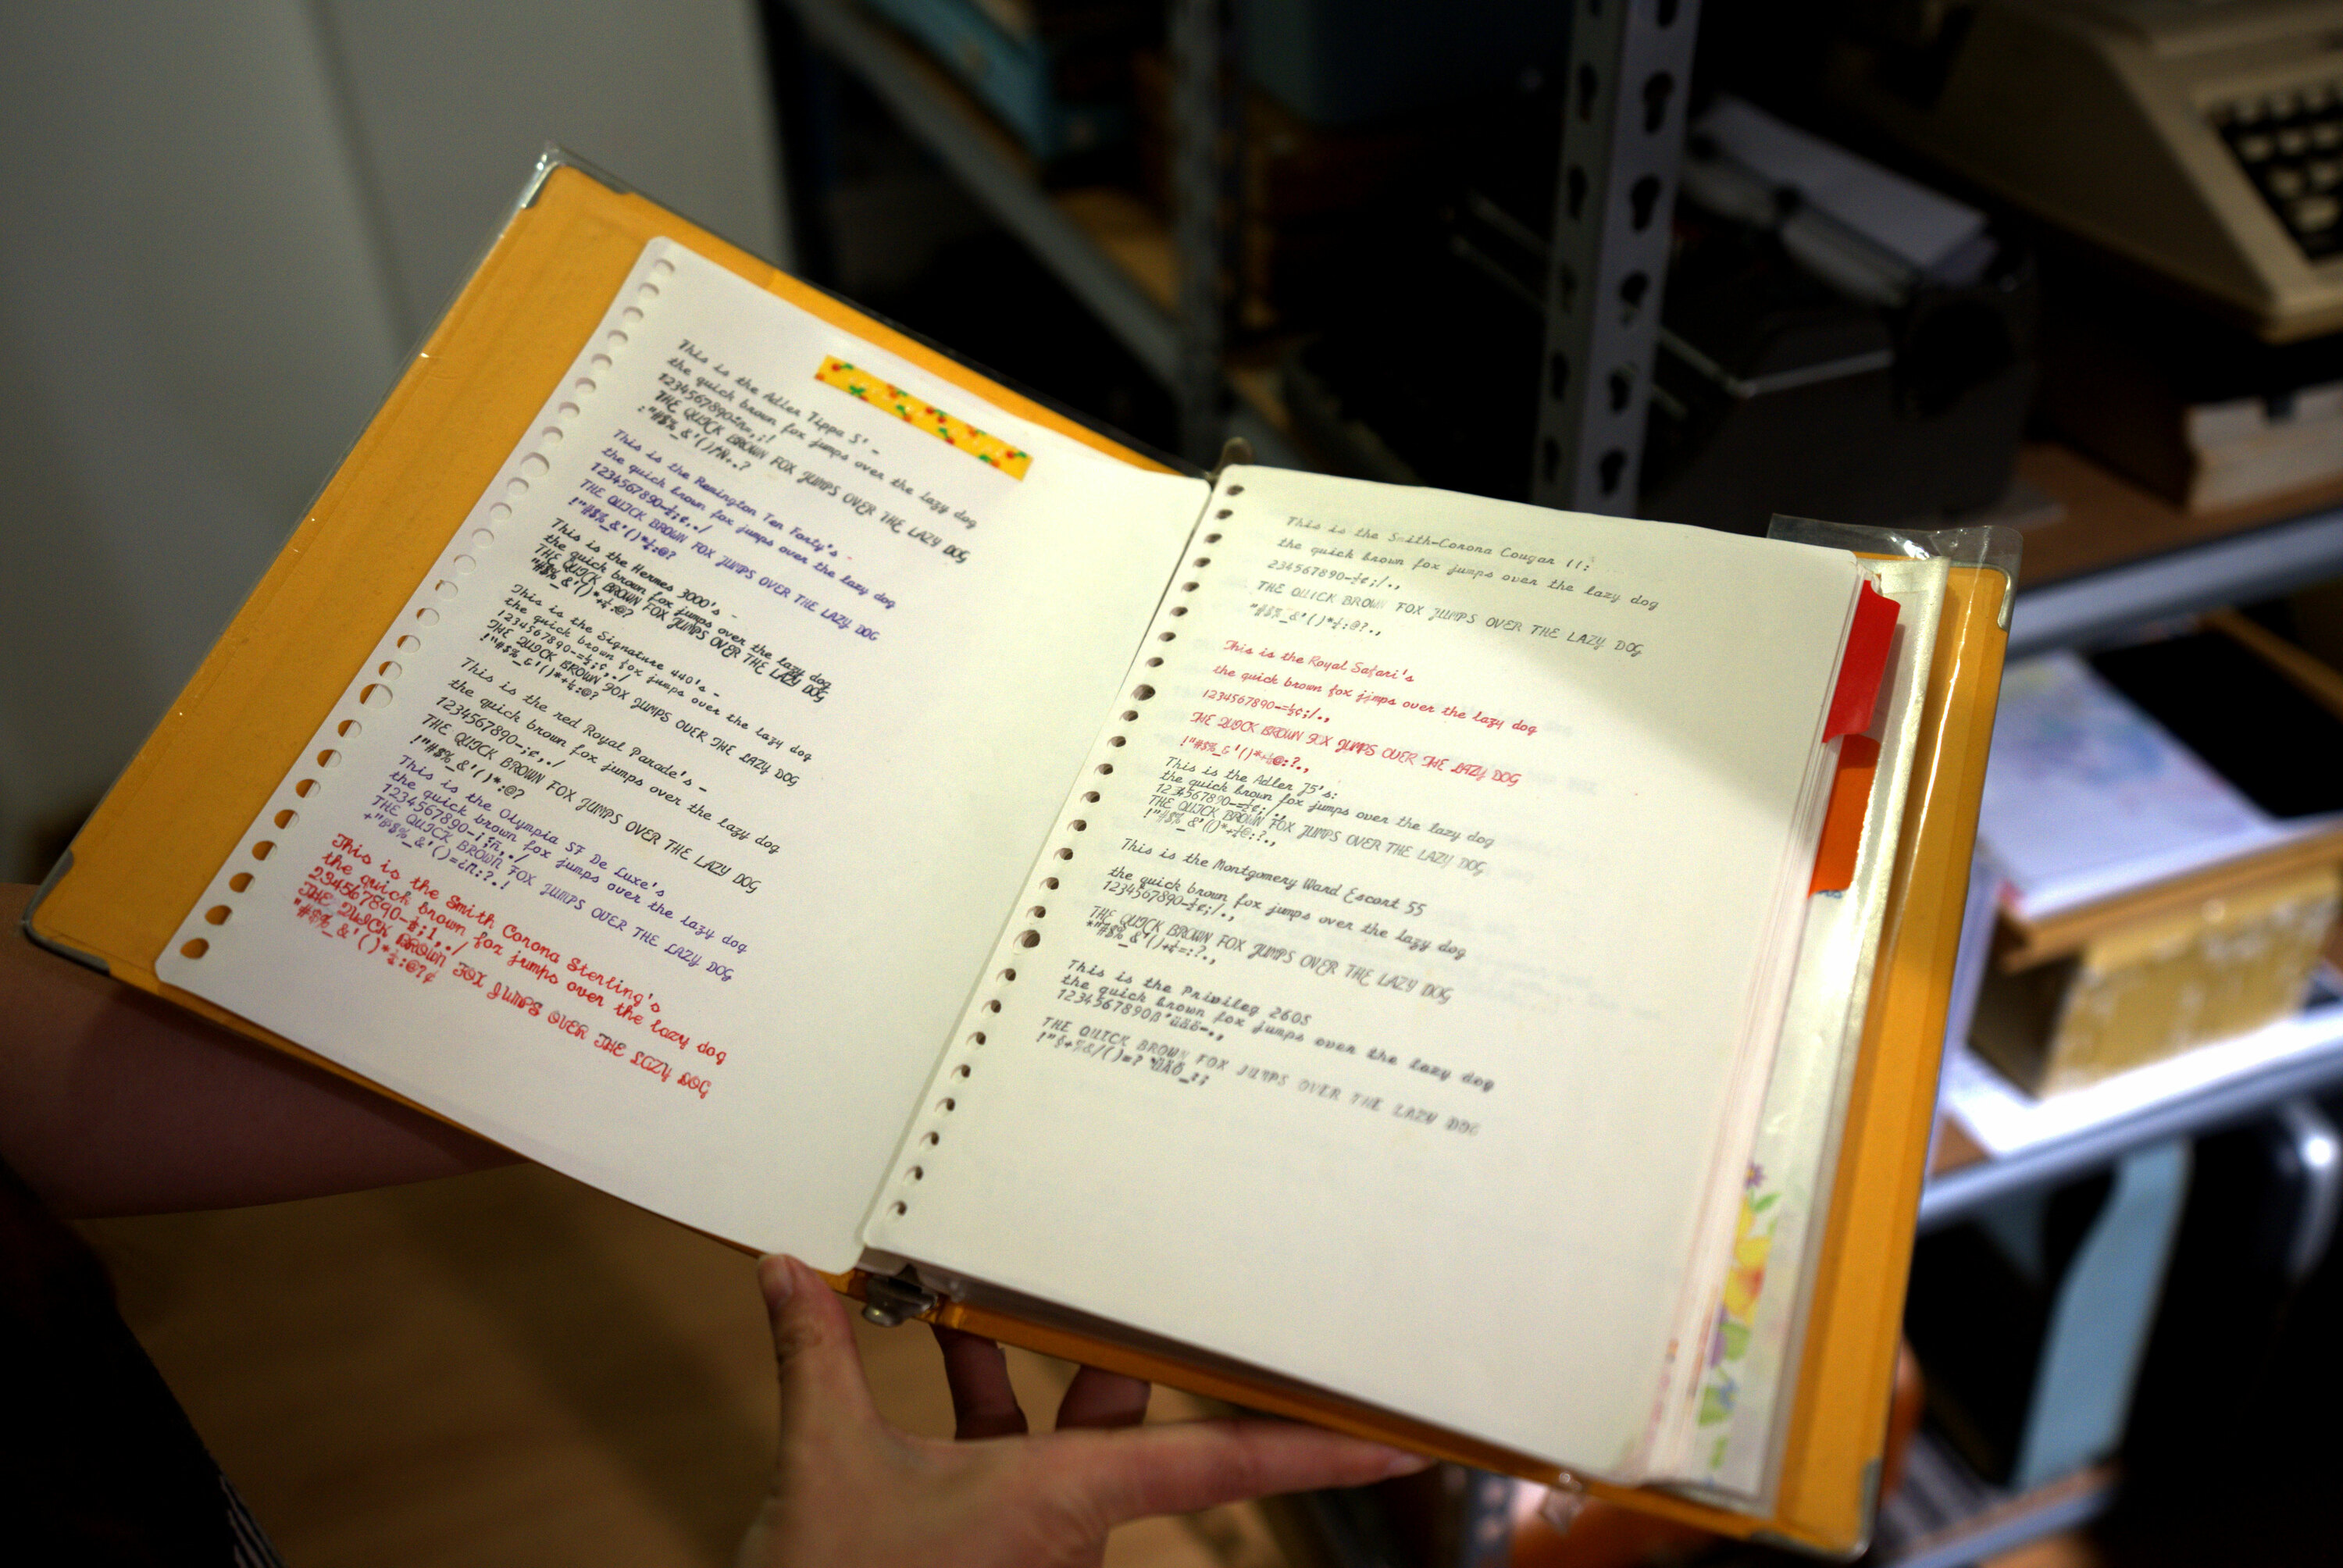 This is the Adler Tippa S' -
the quick brown fox jumps over the lazy dog
THE QUICK BROWN FOX JUMPS OVER THE LAZY DOG
This is the Remington Ten Forty's -
the quick brown fox jumps over the lazy dog
1234567890-½;¢,./
THE QUICK BROWN FOX JUMPS OVER THE LAZY DOG
!"#$%_&'()*¼:@?
This is the Hermes 3000's -
the quick brown fox jumps over the lazy dog
THE QUICK BROWN FOX JUMPS OVER THE LAZY DOG
"#$%_&'()*+¼:@?
This is the Signature 440's -
the quick brown fox jumps over the lazy dog
1234567890-=½;¢,./
THE QUICK BROWN FOX JUMPS OVER THE LAZY DOG
!"#$%_&'()*+¼:@?
This is the red Royal Parade's -
the quick brown fox jumps over the lazy dog
1234567890-;¢,./
THE QUICK BROWN FOX JUMPS OVER THE LAZY DOG
!"#$%_&'()*:@?
This is the Olympia SF De Luxe's
the quick brown fox jumps over the lazy dog
THE QUICK BROWN FOX JUMPS OVER THE LAZY DOG
This is the Smith Corona Sterling's
the quick brown fox jumps over the lazy dog
234567890-½;1,./
THE QUICK BROWN FOX JUMPS OVER THE LAZY DOG
"#$%_&'()*¼:@?¢
This is the Smith-Corona Cougar
the quick brown fox jumps over the lazy dog
234567890-½¢;/.,
THE QUICK BROWN FOX JUMPS OVER THE LAZY DOG
"#$%_&'()*¼:@?.,
This is the Royal Safari's
the quick brown fox jimps over the lazy dog
1234567890-=½¢;/.,
THE QUICK BROWN FOX JUMPS OVER THE LAZY DOG
!"#$%_&'()*+¼@:?.,
This is the Adler J5's:
the quick brown fox jumps over the lazy dog
THE QUICK BROWN FOX JUMPS OVER THE LAZY DOG
!"#$%_&'()*+¼@:?.,
This is the Montgomery Ward Escort 55
the quick brown fox jumps over the lazy dog
1234567890-½¢;/.,
THE QUICK BROWN FOX JUMPS OVER THE LAZY DOG
This is the Privileg 260S
the quick brown fox jumps over the lazy dog
1234567890ß´üäö-.,
THE QUICK BROWN FOX JUMPS OVER THE LAZY DOG